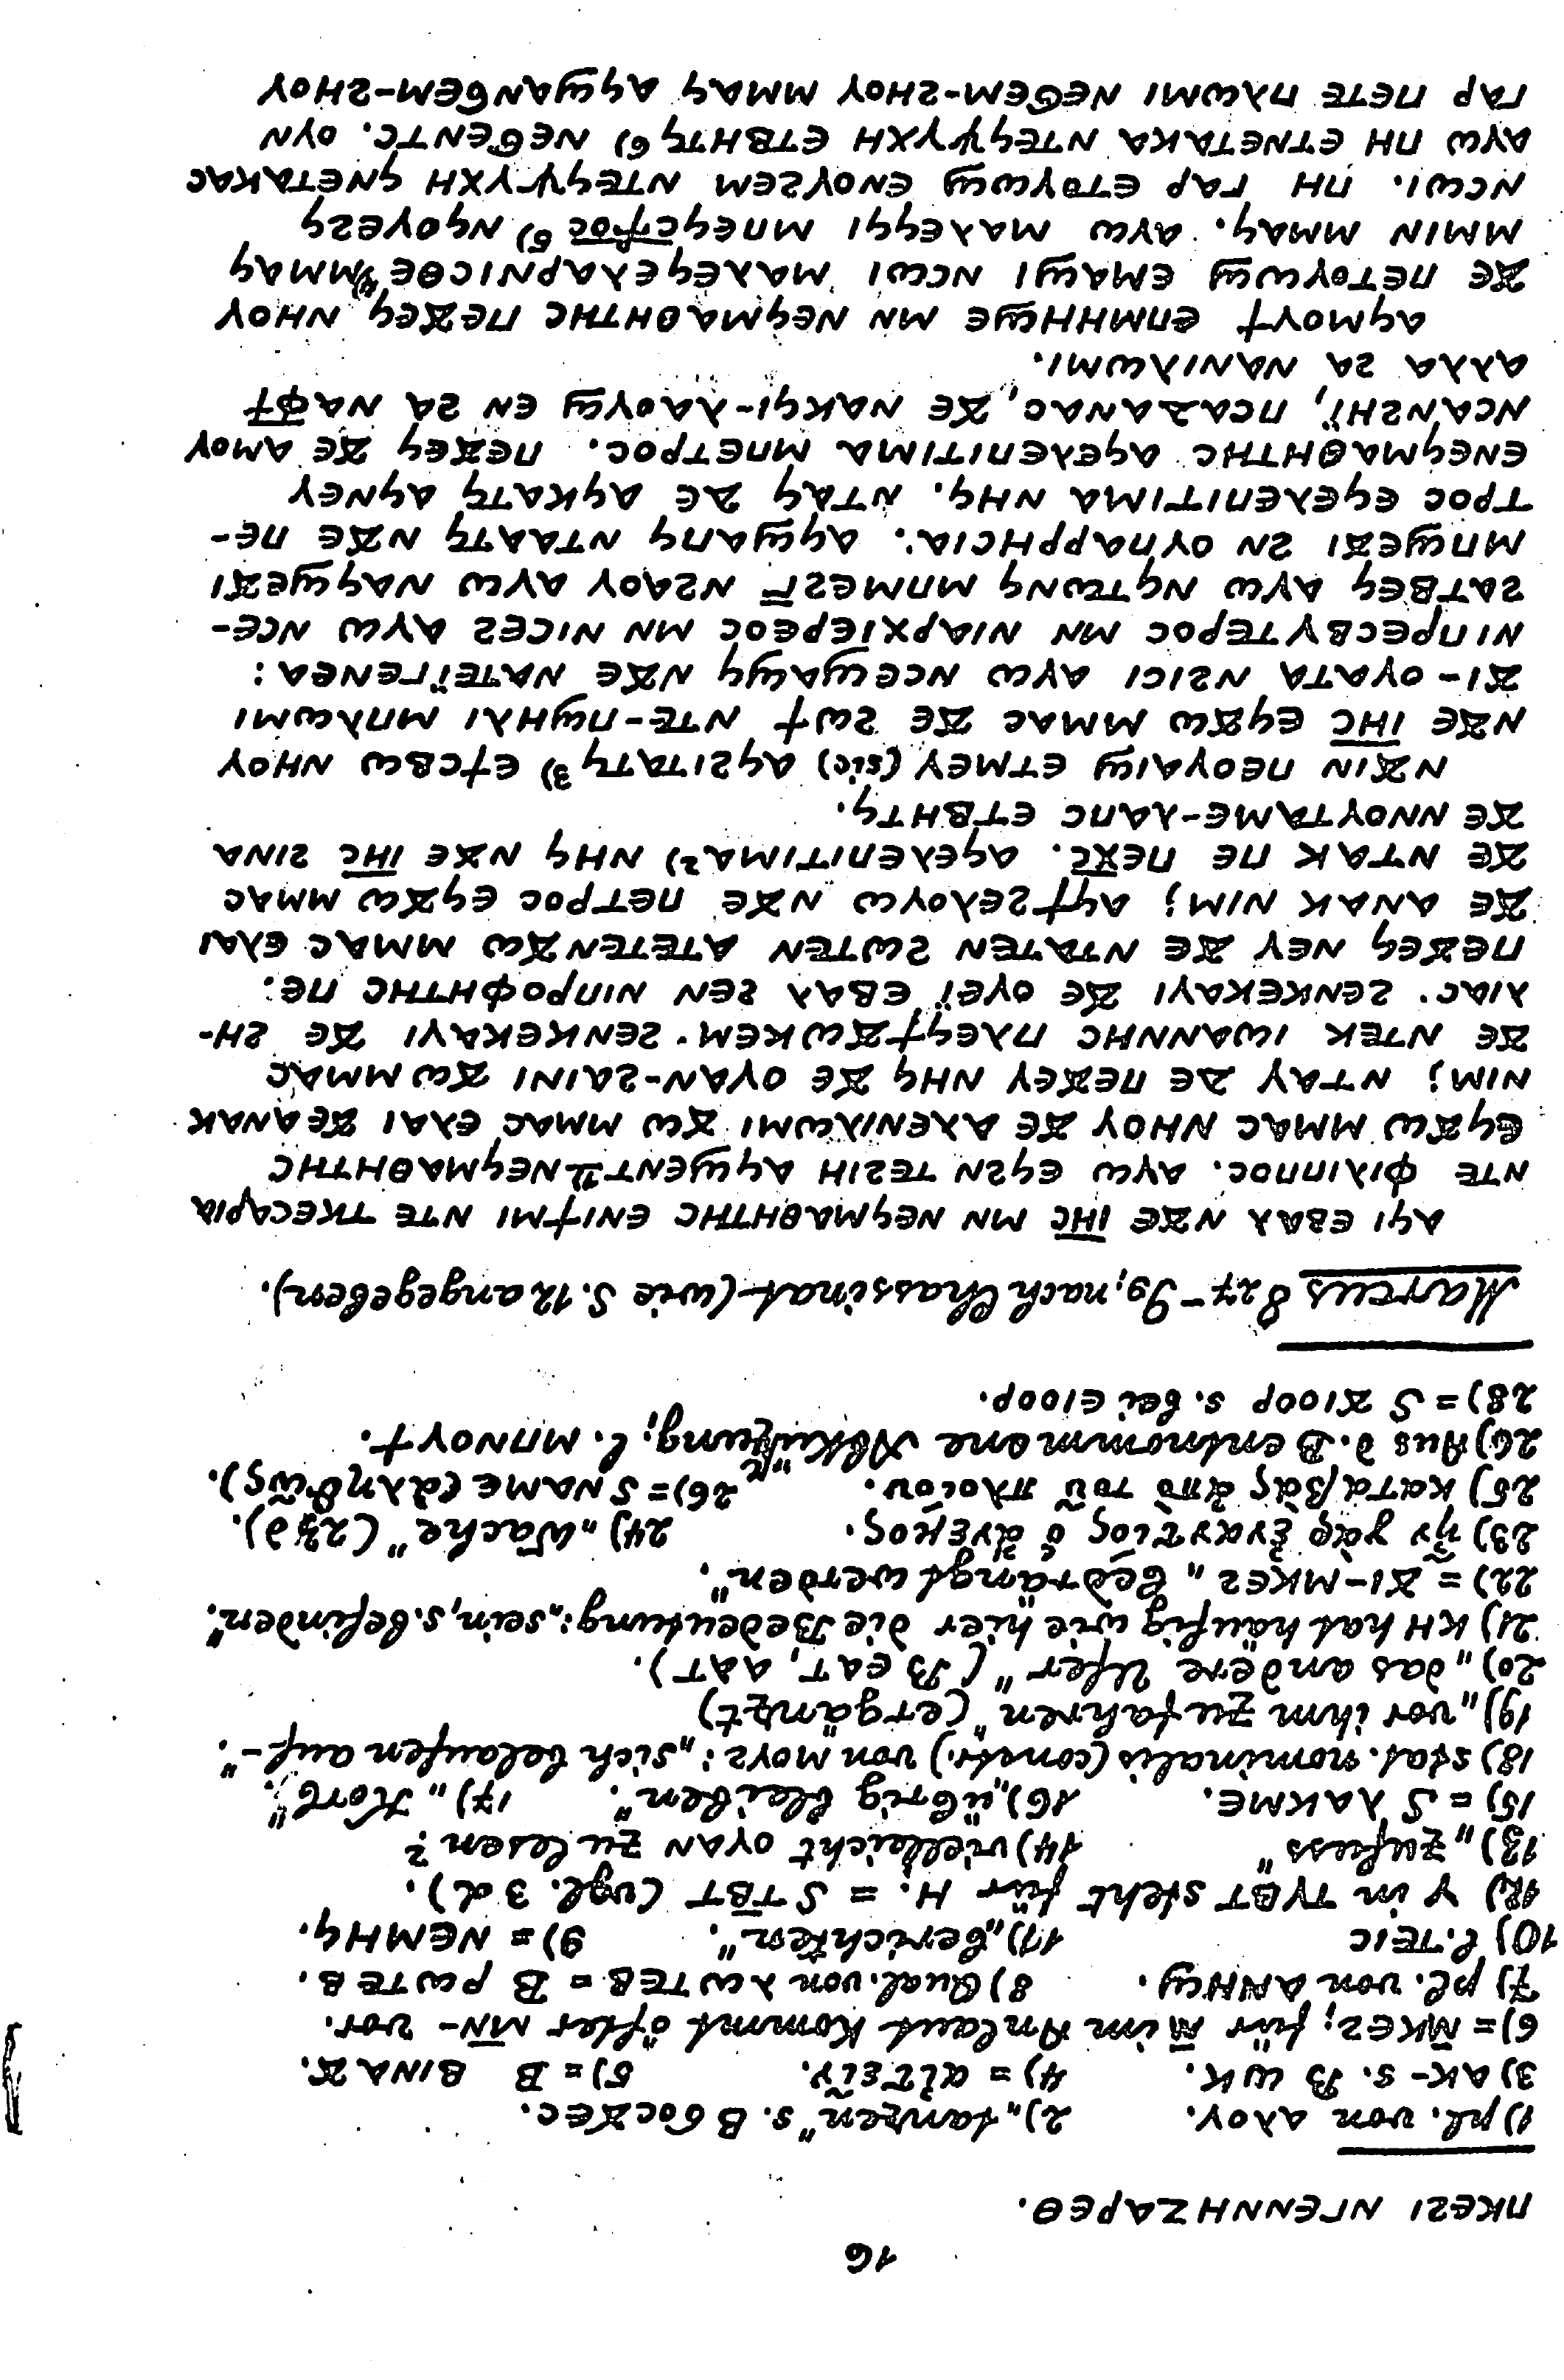 16
ⲡⲕⲉϩⲓ ⲛⲅⲉⲛⲛⲏⲍⲁⲣⲉⲑ.
1) pl. von ⲁⲗⲟⲩ. 2) „tanzen" s. B ϭⲟⲥϫⲉⲥ.
3) ⲁⲕ- s. B ⲱⲕ. 4) = αἰτεῖν. 5) = B ⲃⲓⲛⲁϫ.
6) = ⲙ̄ⲕⲉϩ; für ⲙ̄ im Anlaut kommt öfter ⲙⲛ̄- vor.
7) pl. von ⲁⲛⲏϣ. 8) Qual. von ⲗⲱⲧⲉⲃ = B ⲣⲱⲧⲉⲃ.
10) l. ⲧⲉⲓⲥ 11) „berichten". 9) = ⲛⲉⲙⲏϥ.
12) ⲩ in ⲧⲩⲃⲧ steht für ⲏ. = S ⲧⲃ̄ⲧ (vgl. 3 d).
13) „zufuss" 14) vielleicht ⲟⲩⲁⲛ zu lesen?
15) = S ⲗⲁⲕⲙⲉ. 16) „übrig bleiben". 17) „Korb".
18) stat. nominalis (constr.) von ⲙⲟⲩϩ: „sich belaufen auf-".
19) „vor ihm zu fahren" (ergänzt)
20) „das andere Ufer" (B ⲉⲁⲧ, ⲁⲁⲧ).
21) ⲕⲏ hat häufig wie hier die Bedeutung: „sein, s. befinden".
22) = ϫⲓ-ⲙⲕⲉϩ „bedrängt werden".
23) ἦν γὰρ ἐναντίος ὁ ἄνεμος. 24) „Wache" (23 d).
25) καταβὰς ἀπὸ τοῦ πλοίου. 26) = S ⲛⲁⲙⲉ (ἀληθῶς).
26) Aus d. B entnommene Abkürzung; l. ⲙⲡⲛⲟⲩϯ.
28) = S ϫⲓⲟⲟⲣ s. bei ⲉⲓⲟⲟⲣ.
Marcus 8 27 - 9, nach Chassinat (wie S. 12 angegeben).
ⲁϥⲓ ⲉⲃⲁⲗ ⲛϫⲉ ⲓⲏⲥ ⲙⲛ ⲛⲉϥⲙⲁⲑⲏⲧⲏⲥ ⲉⲛⲓϯⲙⲓ ⲛⲧⲉ ⲧⲕⲉⲥⲁⲣⲓⲁ
ⲛⲧⲉ ⲫⲓⲗⲓⲡⲡⲟⲥ. ⲁⲩⲱ ⲉϥϩⲛ ⲧⲉϩⲓⲏ ⲁϥϣⲉⲛⲧ 1) ⲛⲉϥⲙⲁⲑⲏⲧⲏⲥ
ⲉϥϫⲱ ⲙⲙⲁⲥ ⲛⲏⲟⲩ ϫⲉ ⲁⲗⲉⲛⲓⲗⲱⲙⲓ ϫⲱ ⲙⲙⲁⲥ ⲉⲗⲁⲓ ϫⲉ ⲁⲛⲁⲕ
ⲛⲓⲙ; ⲛⲧⲁⲩ ⲇⲉ ⲡⲉϫⲉⲩ ⲛⲏϥ ϫⲉ ⲟⲩⲁⲛ-ϩⲁⲓⲛⲓ ϫⲱ ⲙⲙⲁⲥ
ϫⲉ ⲛⲧⲉⲕ ⲓⲱⲁⲛⲛⲏⲥ ⲡⲗⲉϥϯϫⲱⲕⲉⲙ· ϩⲉⲛⲕⲉⲕⲁⲩⲓ ϫⲉ ϩⲏ-
ⲗⲓⲁⲥ. ϩⲉⲛⲕⲉⲕⲁⲩⲓ ϫⲉ ⲟⲩⲉⲓ̈ ⲉⲃⲁⲗ ϩⲉⲛ ⲛⲓⲡⲣⲟⲫⲏⲧⲏⲥ ⲡⲉ.
ⲡⲉϫⲉϥ ⲛⲉⲩ ϫⲉ ⲛⲧⲁⲧⲉⲛ ϩⲱⲧⲉⲛ ⲁⲧⲉⲧⲉⲛϫⲱ ⲙⲙⲁⲥ ⲉⲗⲁⲓ
ϫⲉ ⲁⲛⲁⲕ ⲛⲓⲙ; ⲁϥϯϩⲉⲗⲟⲩⲱ ⲛϫⲉ ⲡⲉⲧⲣⲟⲥ ⲉϥϫⲱ ⲙⲙⲁⲥ
ϫⲉ ⲛⲧⲁⲕ ⲡⲉ ⲡⲉⲭⲥ. ⲁϥⲉⲗⲉⲡⲓⲧⲓⲙⲁ 2) ⲛⲏϥ ⲛϫⲉ ⲓⲏⲥ ϩⲓⲛⲁ
ϫⲉ ⲛⲛⲟⲩⲧⲁⲙⲉ-ⲗⲁⲡⲥ ⲉⲧⲃⲏⲧϥ.
ⲛϫⲓⲛ ⲡⲉⲟⲩⲁⲓϣ ⲉⲧⲙⲉⲩ (sic) ⲁϥϩⲓⲧⲁⲧϥ 3) ⲉϯⲥⲃⲱ ⲛⲏⲟⲩ
ⲛϫⲉ ⲓⲏⲥ ⲉϥϫⲱ ⲙⲙⲁⲥ ϫⲉ ϩⲱϯ ⲛⲧⲉ-ⲡϣⲏⲗⲓ ⲙⲡⲗⲱⲙⲓ
ϫⲓ-ⲟⲩⲁⲧⲁ ⲛϩⲓⲥⲓ ⲁⲩⲱ ⲛⲥⲉϣⲁϣϥ ⲛϫⲉ ⲛⲁⲧⲉⲓ̈ⲅⲉⲛⲉⲁ:
ⲛⲓⲡⲣⲉⲥⲃⲩⲧⲉⲣⲟⲥ ⲙⲛ ⲛⲓⲁⲣⲭⲓⲉⲣⲉⲟⲥ ⲙⲛ ⲛⲓⲥⲉϩ ⲁⲩⲱ ⲛⲥⲉ-
ϩⲁⲧⲃⲉϥ ⲁⲩⲱ ⲛϥⲧⲱⲛϥ ⲙⲡⲙⲉϩⲅ̄ ⲛϩⲁⲟⲩ ⲁⲩⲱ ⲛⲁϥϣⲉϫⲓ
ⲙⲡϣⲉϫⲓ ϩⲛ ⲟⲩⲡⲁⲣⲣⲏⲥⲓⲁ. ⲁϥϣⲁⲡϥ ⲛⲧⲁⲁⲧϥ ⲛϫⲉ ⲡⲉ-
ⲧⲣⲟⲥ ⲉϥⲉⲗⲉⲡⲓⲧⲓⲙⲁ ⲛⲏϥ. ⲛⲧⲁϥ ⲇⲉ ⲁϥⲕⲁⲧϥ ⲁϥⲛⲉⲩ
ⲉⲛⲉϥⲙⲁⲑⲏⲧⲏⲥ ⲁϥⲉⲗⲉⲡⲓⲧⲓⲙⲁ ⲙⲡⲉⲧⲣⲟⲥ. ⲡⲉϫⲉϥ ϫⲉ ⲁⲙⲟⲩ
ⲛⲥⲁⲛϩⲏⲓ̈, ⲡⲥⲁⲇⲁⲛⲁⲥ, ϫⲉ ⲛⲁⲕϥⲓ-ⲗⲁⲟⲩϣ ⲉⲛ ϩⲁ ⲛⲁⲫϯ
ⲁⲗⲗⲁ ϩⲁ ⲛⲁⲛⲓⲗⲱⲙⲓ.
ⲁϥⲙⲟⲩϯ ⲉⲡⲙⲏⲏϣⲉ ⲙⲛ ⲛⲉϥⲙⲁⲑⲏⲧⲏⲥ ⲡⲉϫⲉϥ ⲛⲏⲟⲩ
ϫⲉ ⲡⲉⲧⲟⲩⲱϣ ⲉⲙⲁϣⲓ ⲛⲥⲱⲓ ⲙⲁⲗⲉϥⲉⲗⲁⲣⲛⲓⲥⲑⲉ 4) ⲙⲙⲁϥ
ⲙⲙⲓⲛ ⲙⲙⲁϥ. ⲁⲩⲱ ⲙⲁⲗⲉϥϥⲓ ⲙⲡⲉϥⲥⳁⲟⲥ 5) ⲛϥⲟⲩⲉϩϥ
ⲛⲥⲱⲓ. ⲡⲏ ⲅⲁⲣ ⲉⲧⲟⲩⲱϣ ⲉⲛⲟⲩϩⲉⲙ ⲛⲧⲉϥⲯⲩⲭⲏ ϥⲛⲉⲧⲁⲕⲁⲥ
ⲁⲩⲱ ⲡⲏ ⲉⲧⲛⲉⲧⲁⲕⲁ ⲛⲧⲉϥⲯⲩⲭⲏ ⲉⲧⲃⲏⲧϥ 6) ⲛⲉϭⲉⲛⲧⲥ. ⲟⲩⲛ
ⲅⲁⲣ ⲡⲉⲧⲉ ⲡⲗⲱⲙⲓ ⲛⲉϭⲉⲙ-ϩⲏⲟⲩ ⲙⲙⲁϥ ⲁϥϣⲁⲛϭⲉⲙ-ϩⲏⲟⲩ